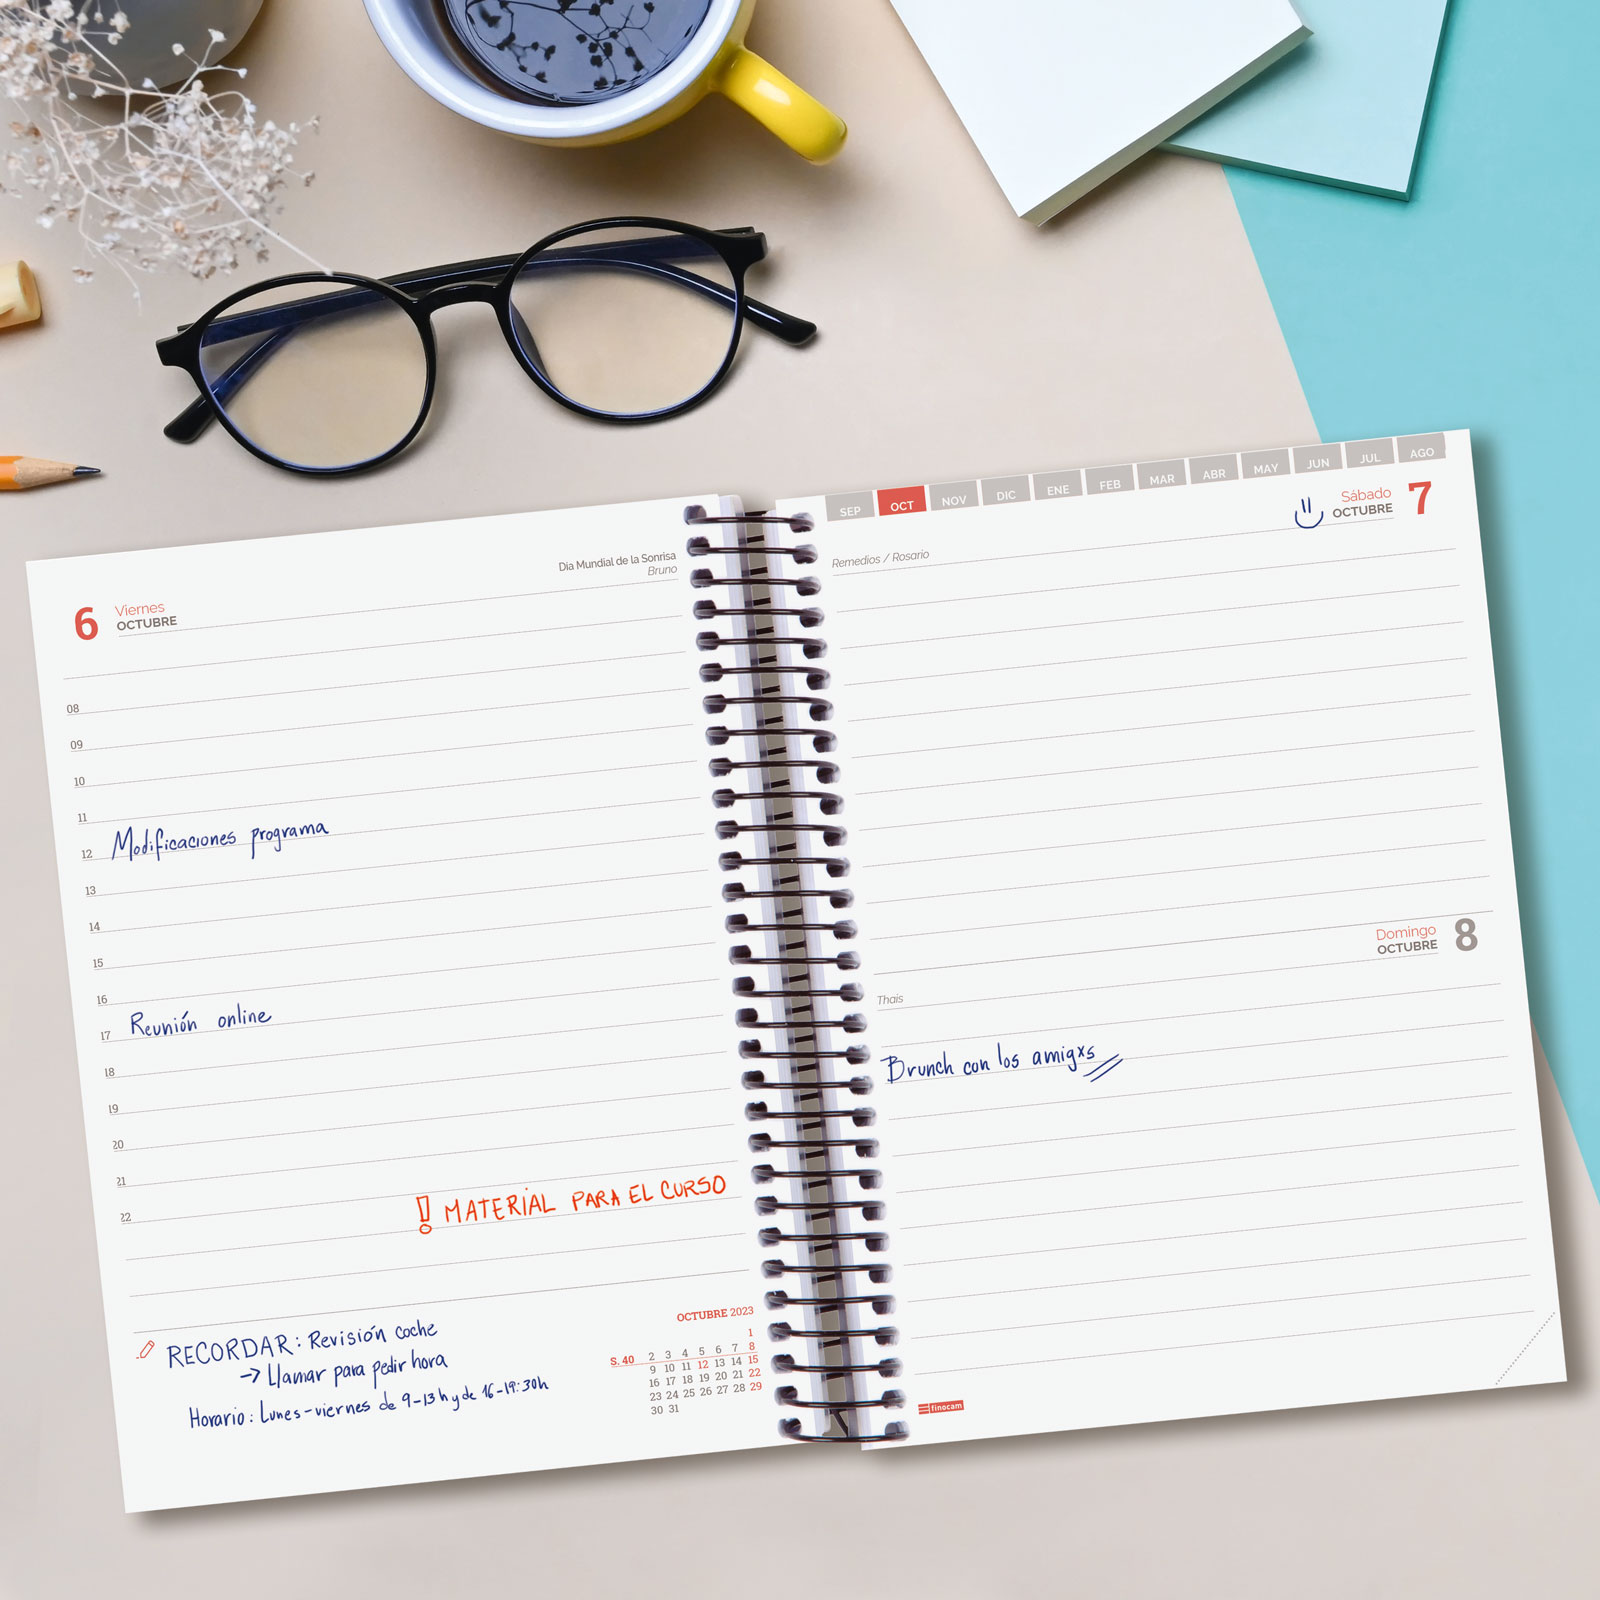 Dia Mundial de la Sonrisa
Bruno
6 Viernes
OCTUBRE
08
09
10
11
12 Modificaciones programa
13
14
15
16
17 Reunión online
18
19
20
21
22
! MATERIAL PARA EL CURSO
RECORDAR: Revisión coche
→ Llamar para pedir hora
Horario: Lunes-viernes de 9-13h y de 16-19:30h
OCTUBRE 2023
1
S. 40 2 3 4 5 6 7 8
9 10 11 12 13 14 15
16 17 18 19 20 21 22
23 24 25 26 27 28 29
30 31
SEP OCT NOV DIC ENE FEB MAR ABR MAY JUN JUL AGO
Sábado 7
OCTUBRE
Remedios / Rosario
Domingo 8
OCTUBRE
Thais
Brunch con los amigxs
finocam